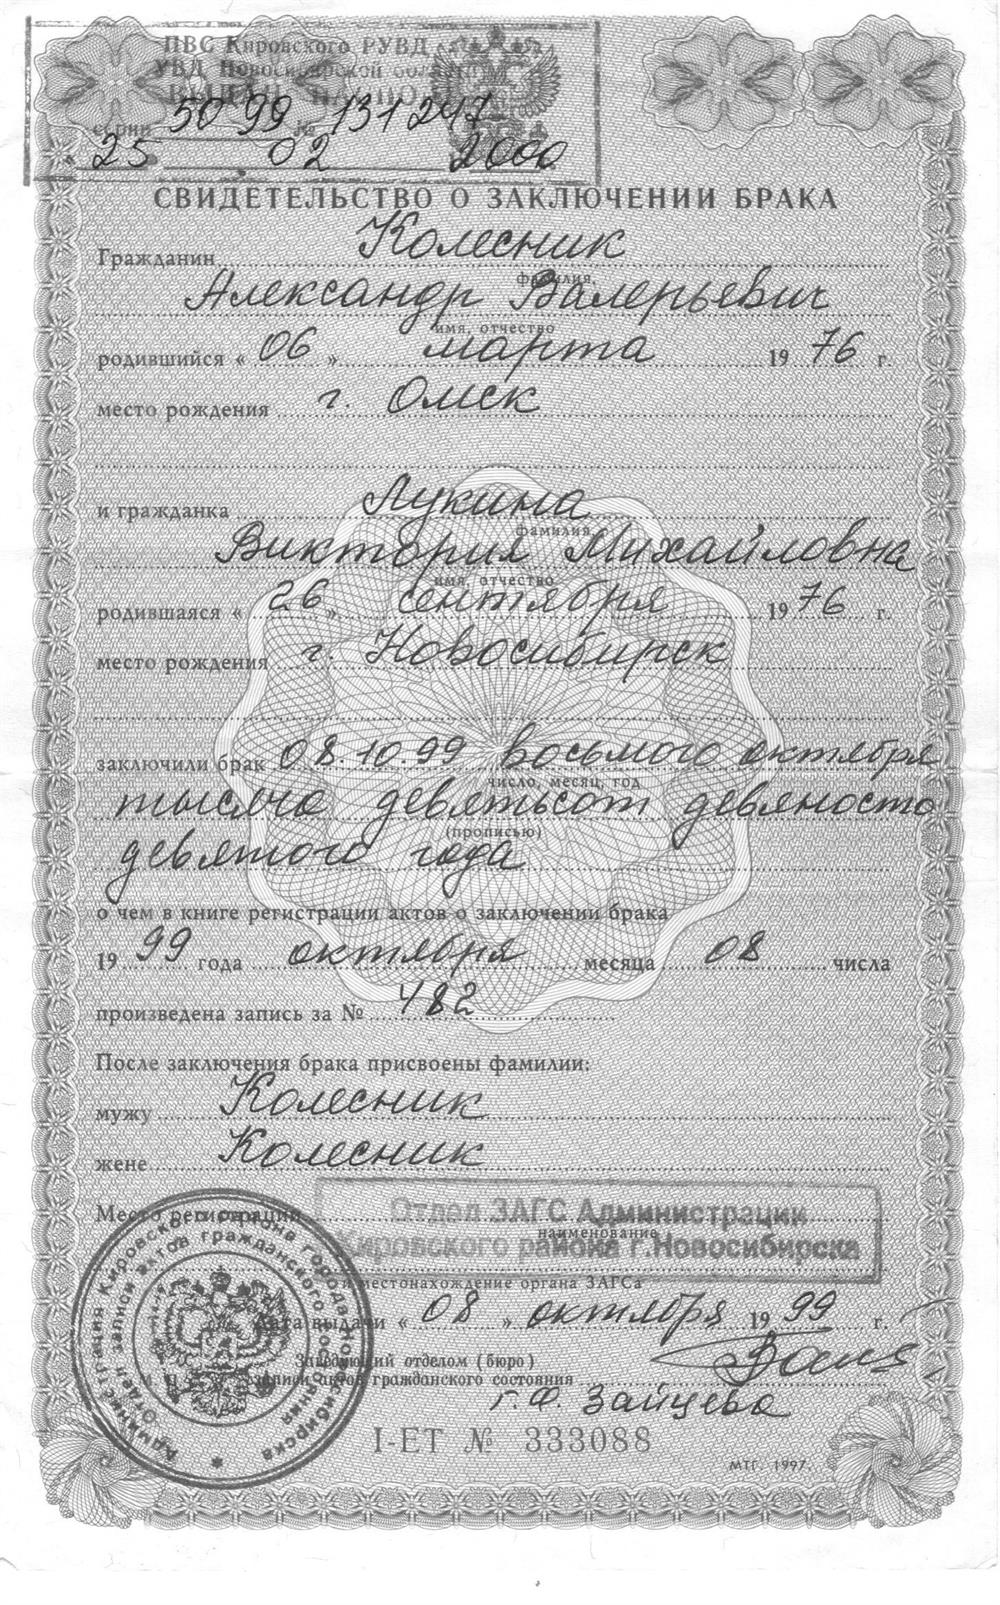 ПВС Кировского РУВД
УВД Новосибирской области
ВЫДАН ПАСПОРТ
серии 50 99 № 131247
25 02 2000
СВИДЕТЕЛЬСТВО О ЗАКЛЮЧЕНИИ БРАКА
Гражданин Колесник
фамилия,
Александр Валерьевич
имя, отчество
родившийся « 06 » марта 19 76 г.
место рождения г. Омск
и гражданка Лукина
фамилия
Виктория Михайловна
имя, отчество
родившаяся « 26 » сентября 19 76 г.
место рождения г. Новосибирск
заключили брак 08.10.99 восьмого октября
число, месяц, год
тысяча девятьсот девяносто
(прописью)
девятого года
о чем в книге регистрации актов о заключении брака
19 99 года октября месяца 08 числа
произведена запись за № 482
После заключения брака присвоены фамилии:
мужу Колесник
жене Колесник
Место регистрации Отдел ЗАГС Администрации
наименование
Кировского района г.Новосибирска
и местонахождение органа ЗАГСа
Дата выдачи « 08 » октября 19 99 г.
Заведующий отделом (бюро)
М. П. записи актов гражданского состояния
Г.Ф. Зайцева
I-ЕТ № 333088
МТГ. 1997.
Администрация Кировского района города Новосибирска
Отдел записи актов гражданского состояния